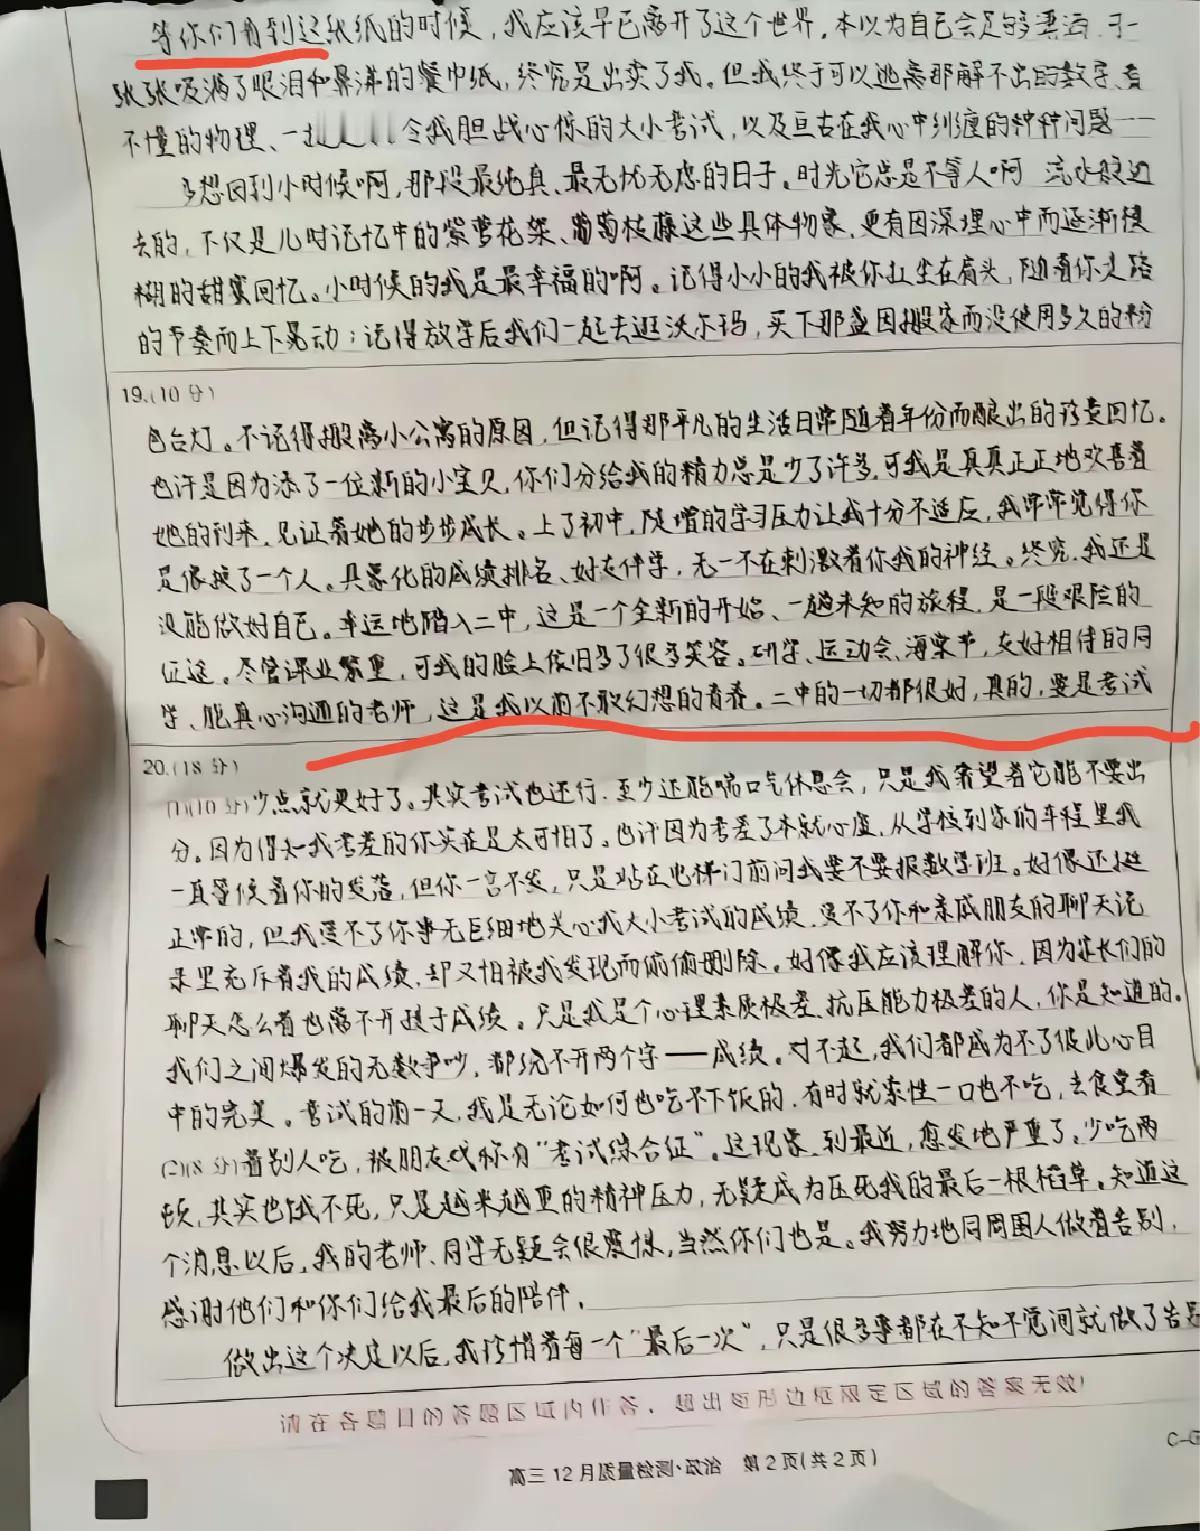 等你们看到这张纸的时候，我应该早已离开了这个世界。本以为自己会足够潇洒，于一
张张吸满了眼泪和鼻涕的餐巾纸，终究是出卖了我。但我终于可以逃离那解不出的数学、看
不懂的物理、一 令我胆战心惊的大小考试，以及亘古在我心中纠缠的种种问题——
多想回到小时候啊，那段最纯真、最无忧无虑的日子。时光它总是不等人啊 流水般逝
去的，不仅是儿时记忆中的紫萝花架、葡萄枝藤这些具体物象，更有因深埋心中而逐渐模
糊的甜蜜回忆。小时候的我是最幸福的啊。记得小小的我被你扛坐在肩头，随着你走路
的节奏而上下晃动；记得放学后我们一起去逛沃尔玛，买下那盏因搬家而没使用多久的粉
19.(10分)
色台灯。不记得搬离小公寓的原因，但记得那平凡的生活日常随着年份而酿出的珍贵回忆。
也许是因为添了一位新的小宝贝，你们分给我的精力总是少了许多，可我是真真正正地欢喜着
她的到来，见证着她的步步成长。上了初中，陡增的学习压力让我十分不适应，我常常觉得你
是像换了一个人。具象化的成绩排名、好友伴学，无一不在刺激着你我的神经。终究，我还是
没能做好自己。幸运地踏入二中，这是一个全新的开始、一趟未知的旅程，是一段艰险的
征途。尽管课业繁重，可我的脸上依旧多了很多笑容。研学、运动会、海棠节，友好相待的同
学、能真心沟通的老师，这是我以前不敢幻想的青春。二中的一切都很好，真的，要是考试
20.(18分)
(1)(10分)少点就更好了。其实考试也还行，至少还能喘口气休息会，只是我希望着它能不要出
分。因为得知我考差的你实在是太可怕了。也许因为考差了本就心虚，从学校到家的车程里我
一直等候着你的发落，但你一言不发，只是站在电梯门前问我要不要报数学班。好像还挺
正常的，但我受不了你事无巨细地关心我大小考试的成绩，受不了你和亲戚朋友的聊天记
录里充斥着我的成绩，却又怕被我发现而偷偷删除。好像我应该理解你，因为家长们的
聊天怎么着也离不开孩子成绩。只是我是个心理素质极差、抗压能力极差的人，你是知道的。
我们之间爆发的无数争吵，都绕不开两个字——成绩。对不起，我们都成为不了彼此心目
中的完美。考试的前一天，我是无论如何也吃不下饭的，有时就索性一口也不吃，去食堂看
(2)(8分)着别人吃，被朋友戏称有“考试综合征”。这现象，到最近，愈发地严重了。少吃两
顿，其实也饿不死，只是越来越重的精神压力，无疑成为压死我的最后一根稻草。知道这
个消息以后，我的老师、同学无疑会很震惊，当然你们也是。我努力地同周围人做着告别，
感谢他们和你们给我最后的陪伴。
做出这个决定以后，我珍惜着每一个“最后一次”，只是很多事都在不知不觉间就做了告别
请在各题目的答题区域内作答，超出矩形边框限定区域的答案无效！
高三12月质量检测·政治 第2页(共2页)